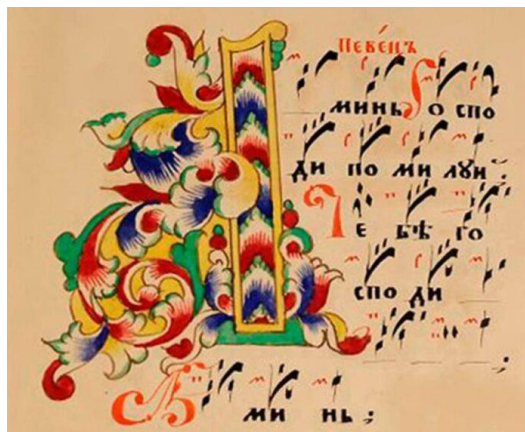 Певе́цъ
А минь Г о спо
ди по ми лꙋи ;
Т е бѣ го
спо ди
;
А ми нь ;